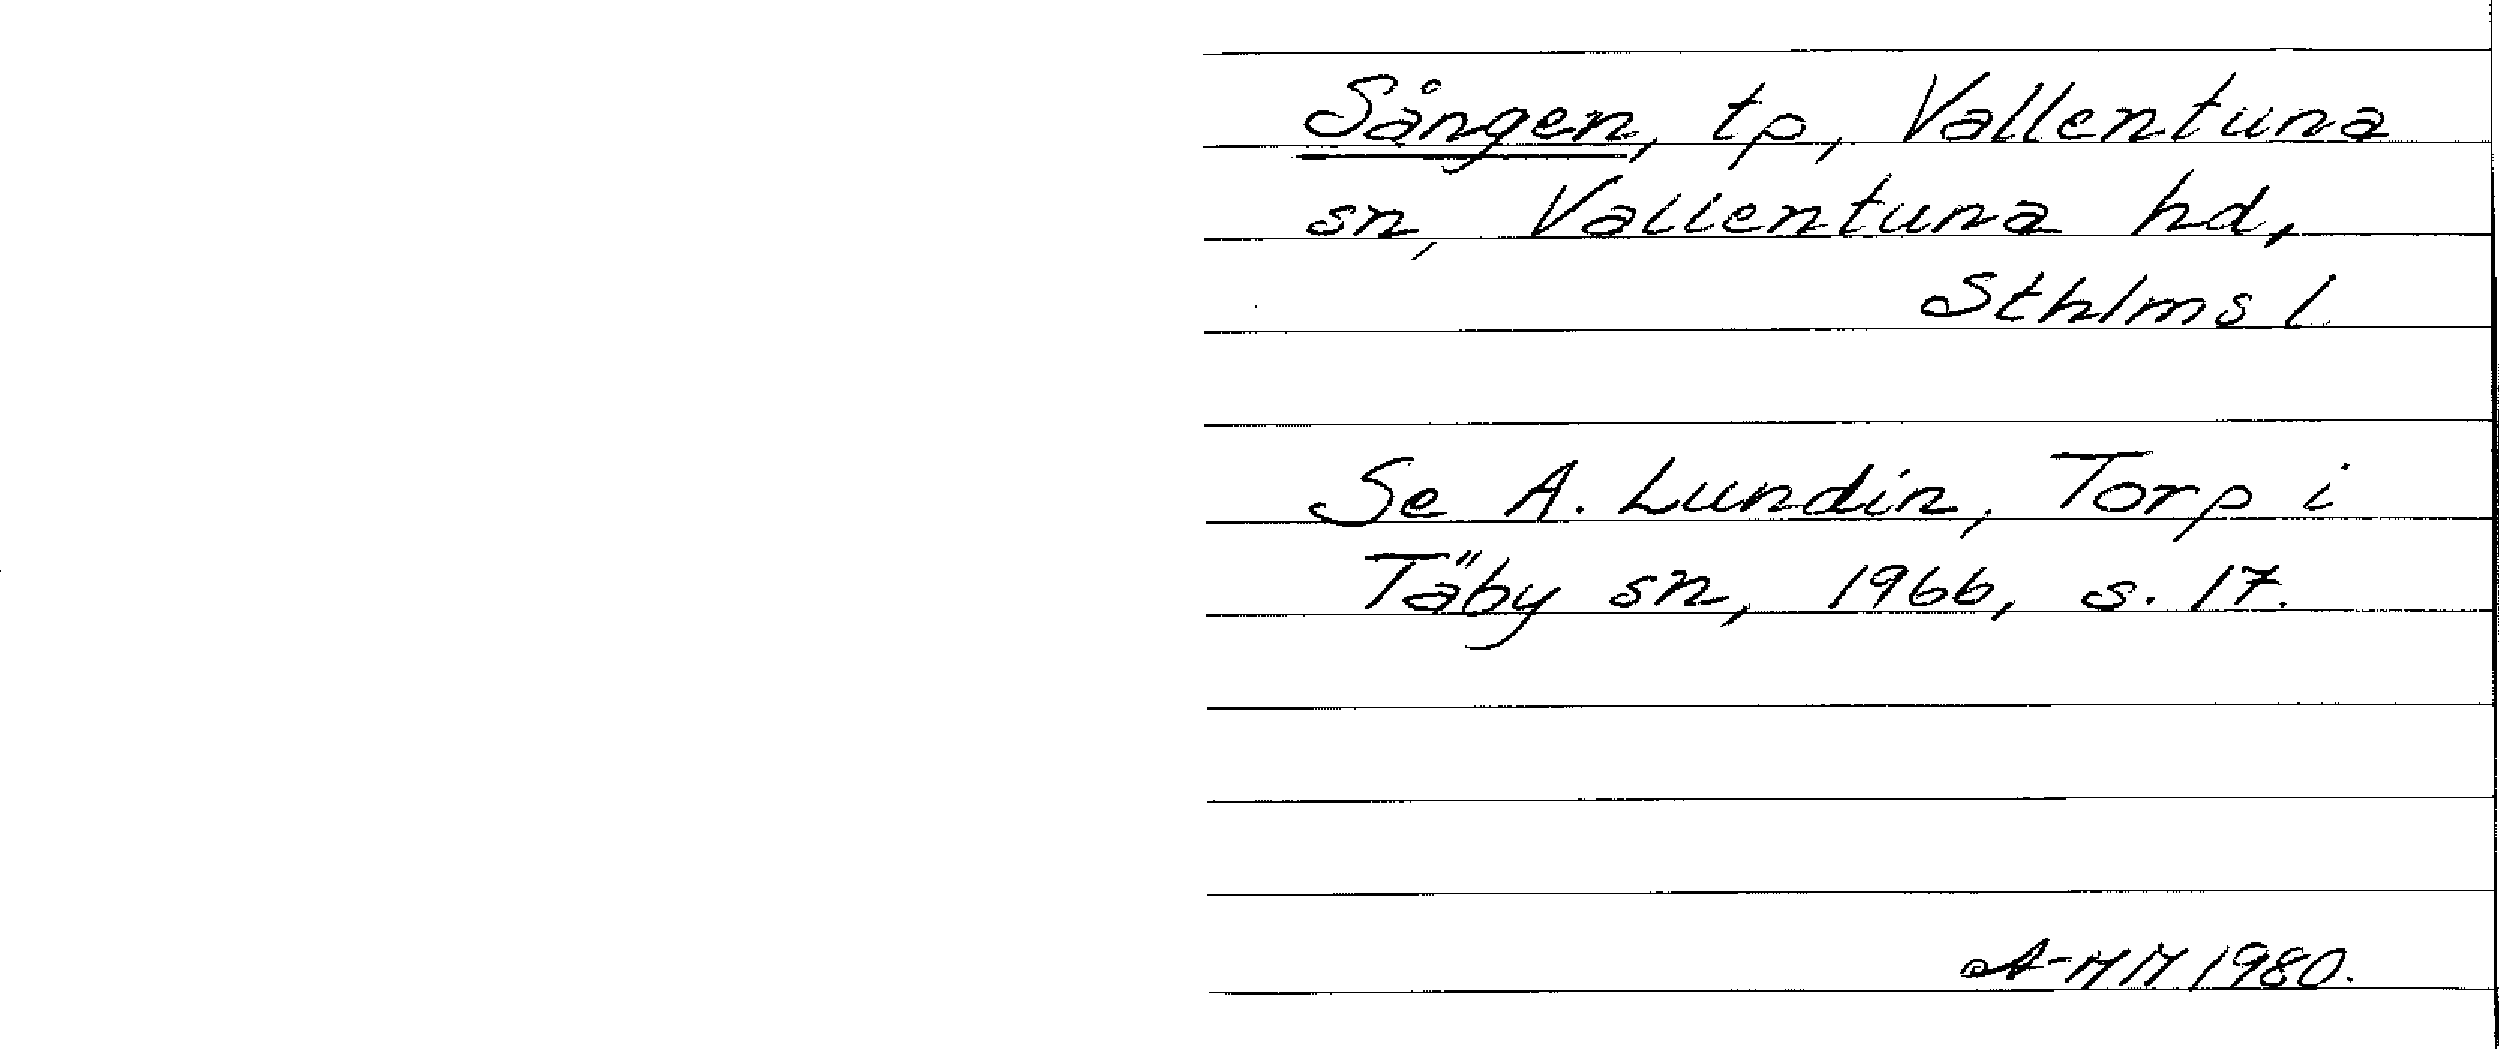 Sången, tp, Vallentuna
sn, Vallentuna hd,
Sthlms l
Se A. Lundin, Torp i
Täby sn, 1966, s. 17.
A-MM 1980.